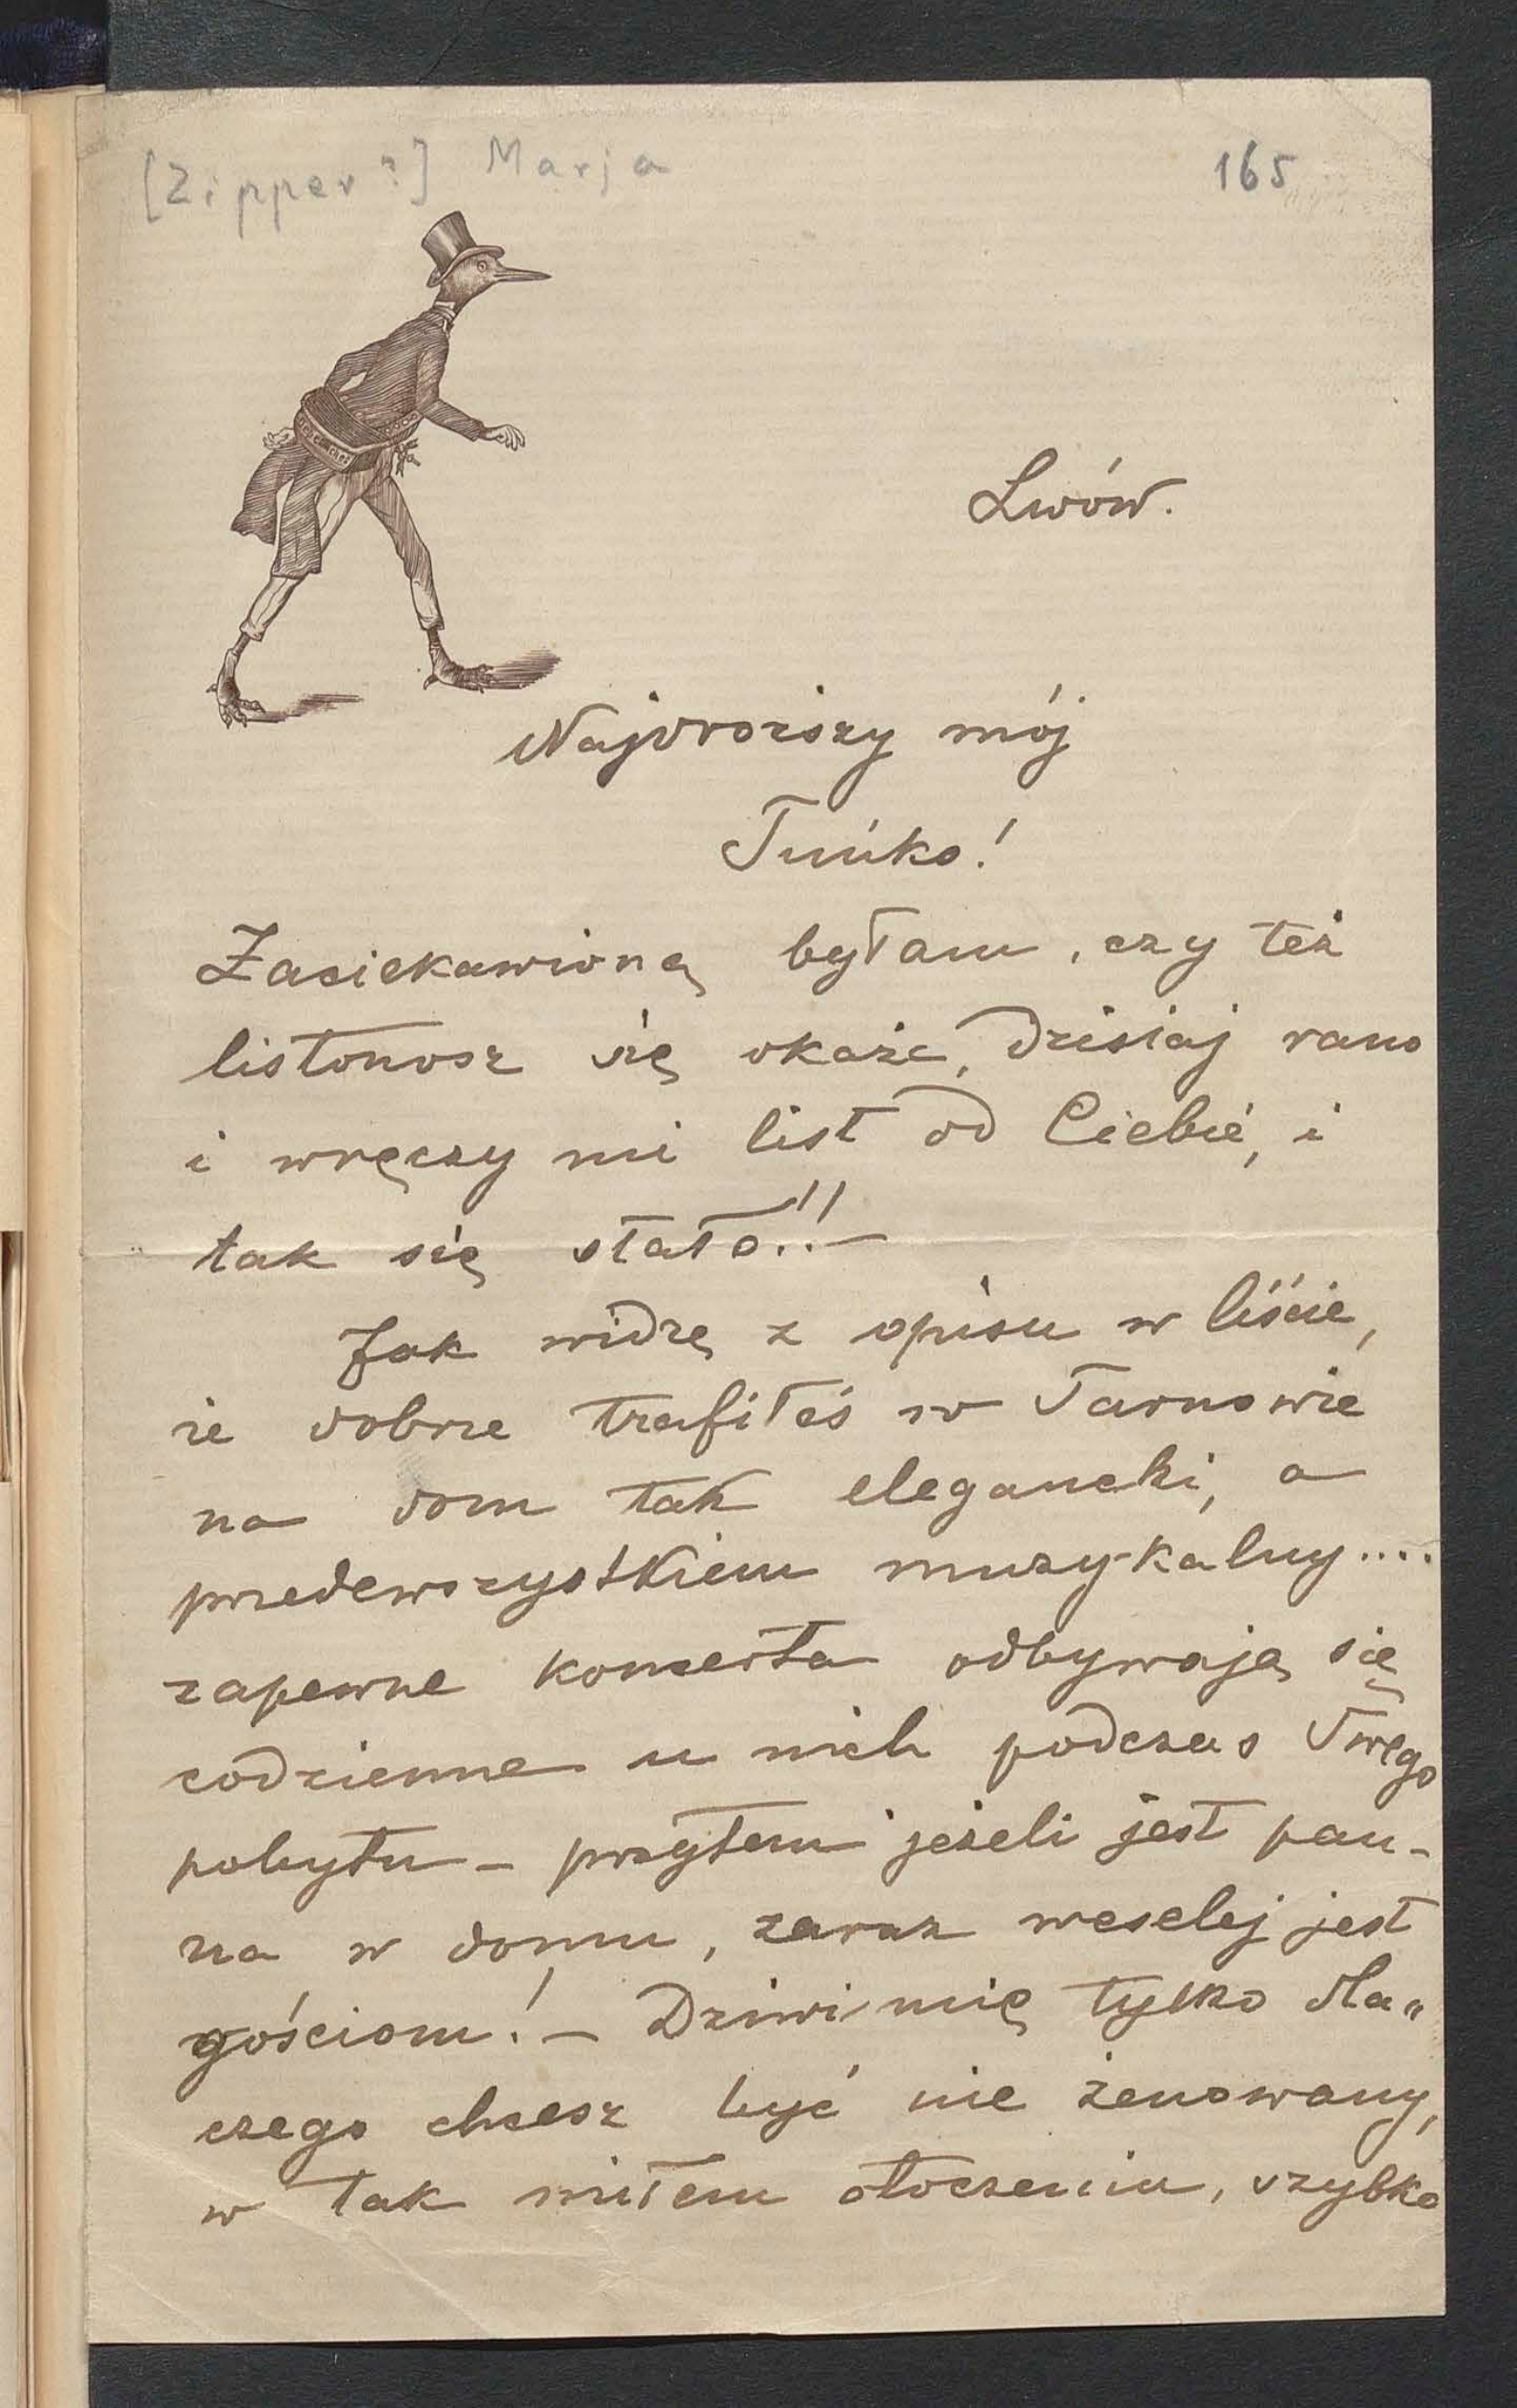 [Zipper?] Marja
165
Lwów.
Najdroższy mój
Tuńko!
Zaciekawioną byłam, czy też
listonosz się okaże, dzisiaj rano
i wręczy mi list od Ciebie, i
tak się stało!!—
Jak widzę z opisu w liście,
że dobrze trafiłeś w Tarnowie
na dom tak elegancki, a
przedewszystkiem muzykalny....
zapewne koncerta odbywają się
codzienne u nich podczas Twego
pobytu – przytem jeżeli jest pan-
na w domu, zaraz weselej jest
gościom! – Dziwi mię tylko dla„
czego chcesz być nie żenowany,
w tak miłem otoczeniu, szybko